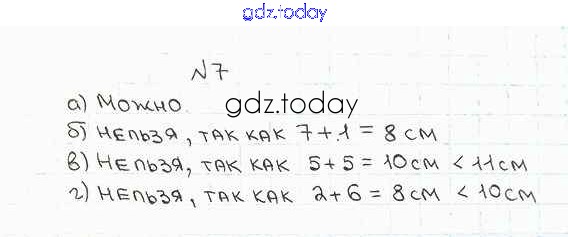 gdz.today
№7
а) Можно.
gdz.today
б) нельзя, так как 7+1 = 8 см
в) нельзя, так как 5+5 = 10 см < 11 см
г) нельзя, так как 2+6 = 8 см < 10 см